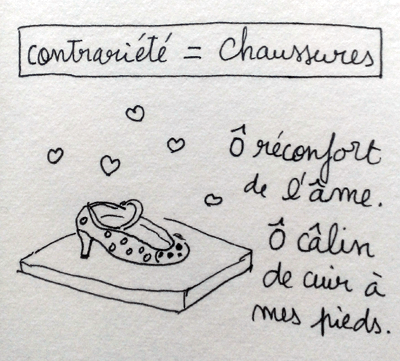 contrariété = Chaussures
Ô réconfort
de l'âme.
Ô câlin
de cuir à
mes pieds.